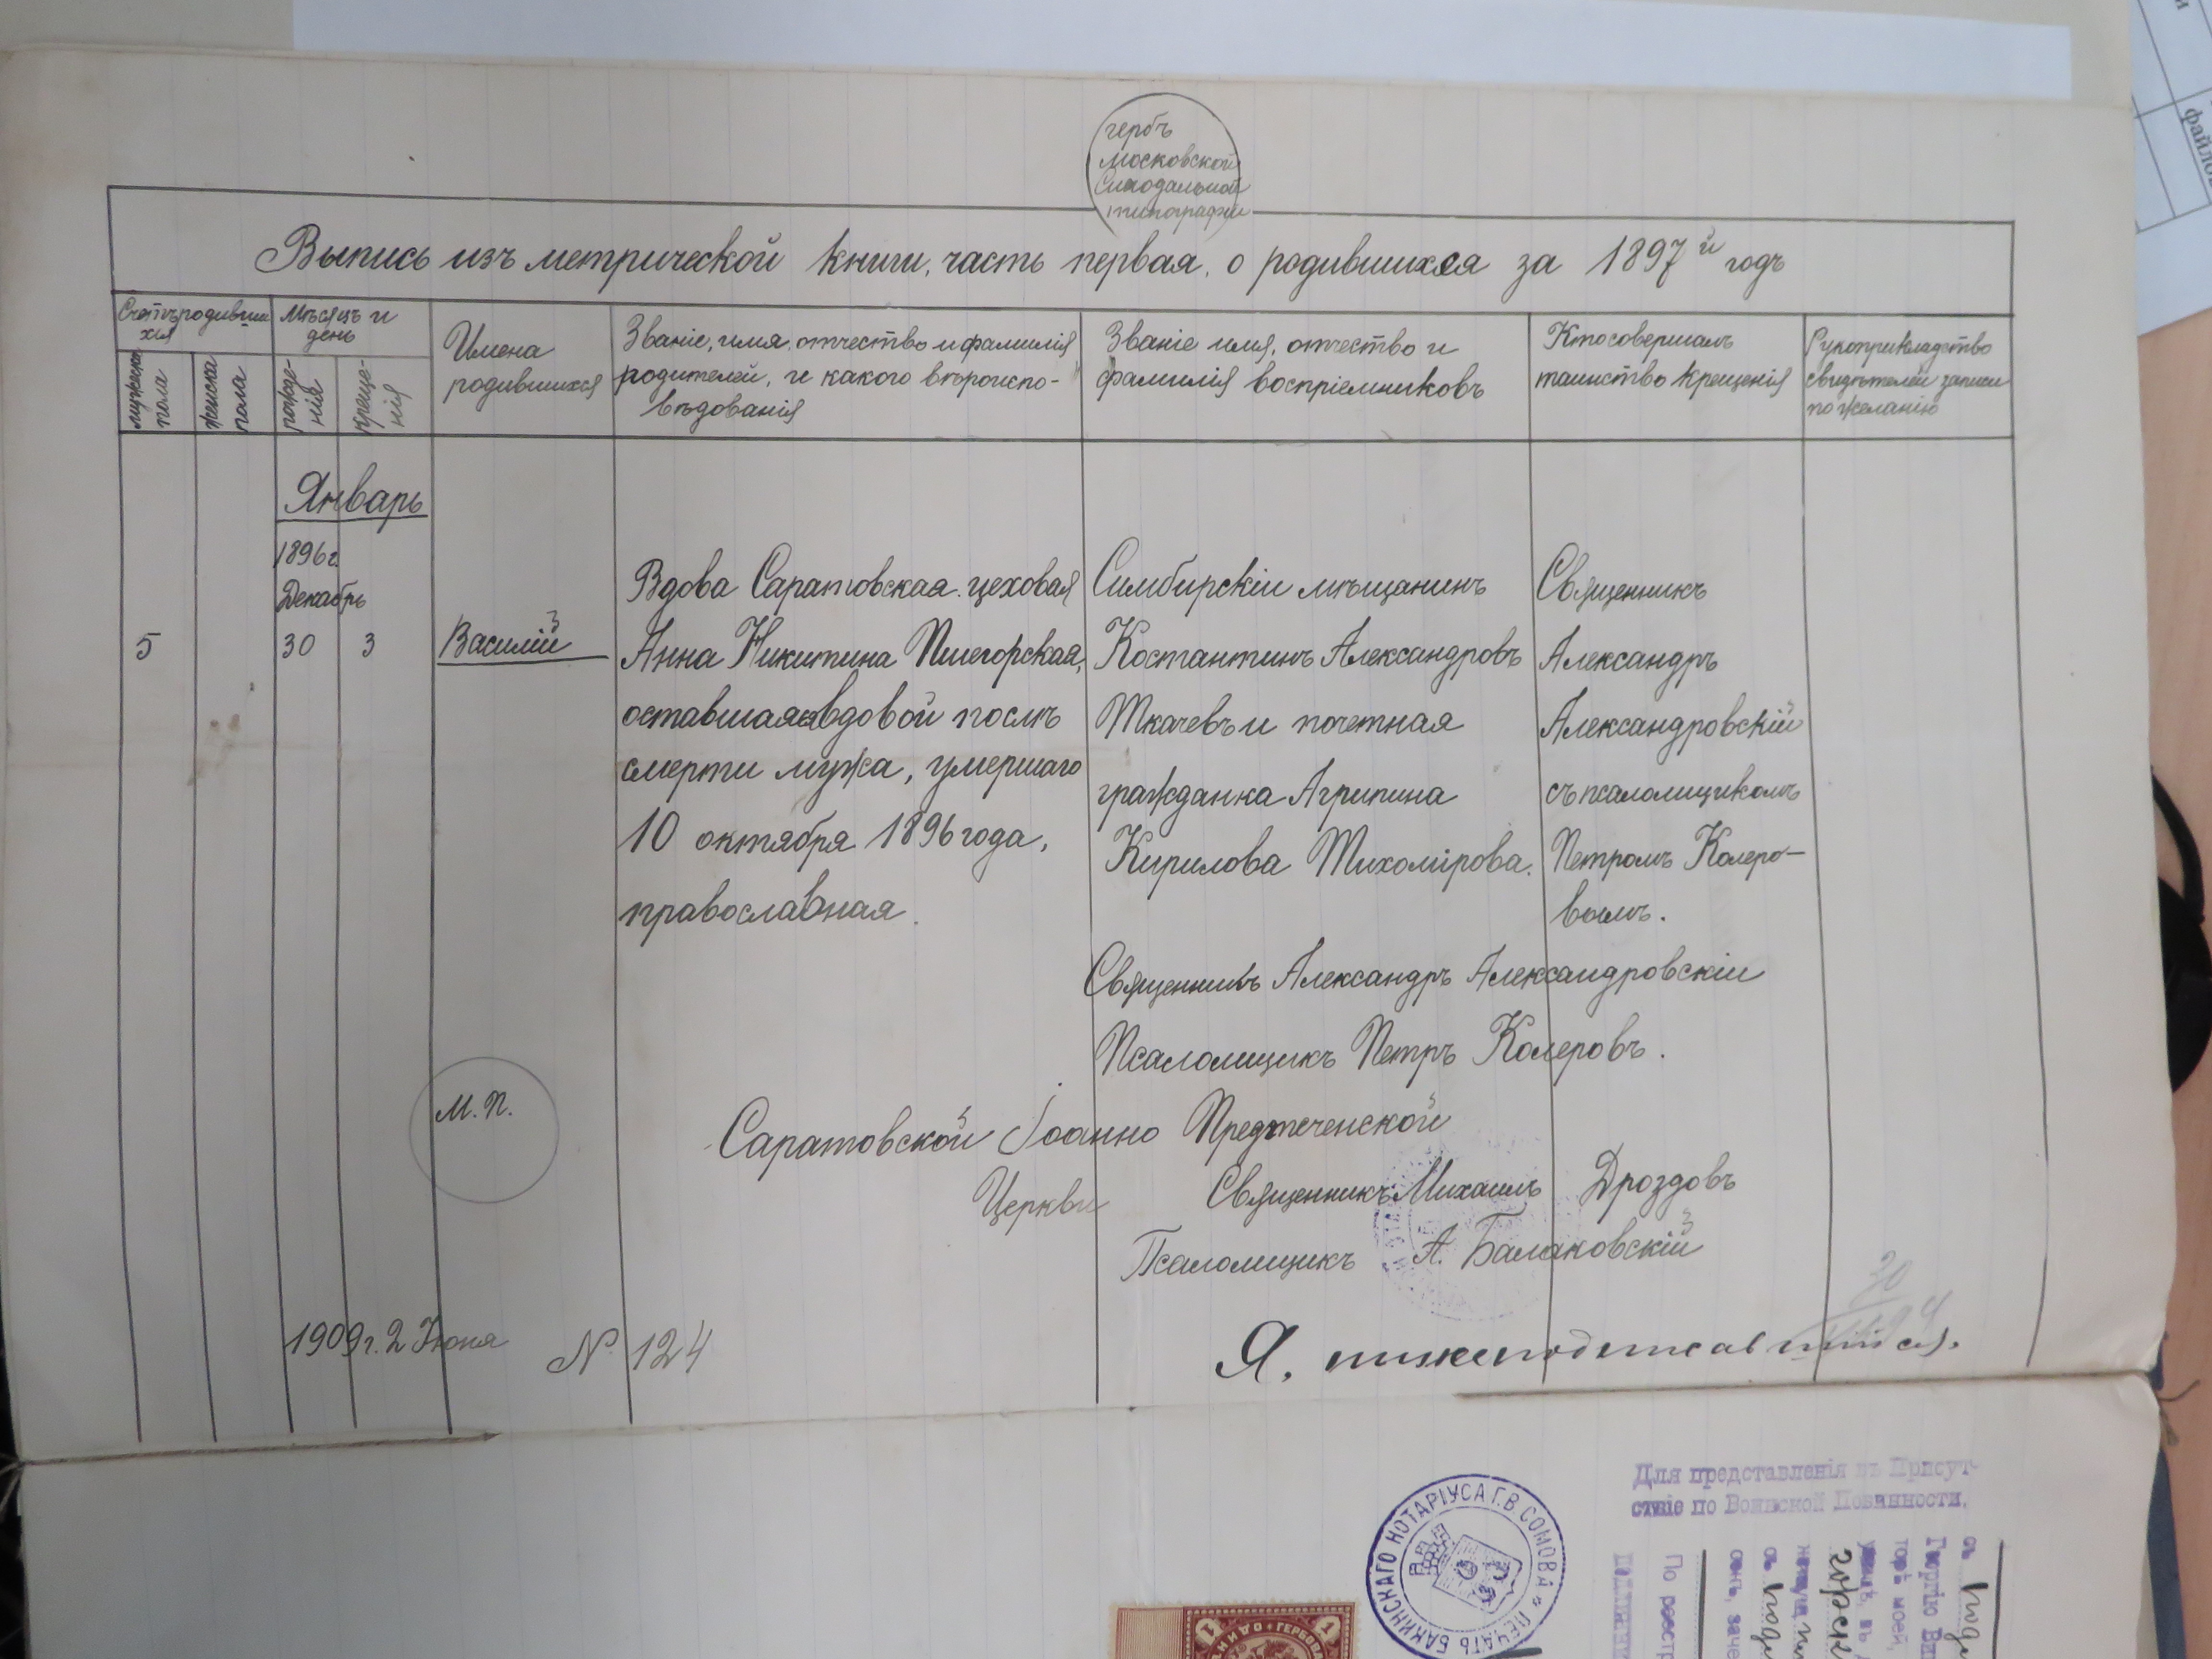 гербъ
Московской
Синодальной
типографіи
Выпись изъ метрической книги, часть первая, о родившихся за 1897й годъ
Счетъ родивши
хся
Мѣсяцъ и
день
мужеска
пола
женска
пола
рожде-
нія
креще-
нія
Имена
родившихся
Званіе, имя, отчество и фамилія
родителей, и какого вѣроиспо-
вѣданія
Званіе имя, отчество и
фамилія воспріемниковъ
Кто совершалъ
таинство крещенія
Рукоприкладство
свидѣтелей записи
по желанію
Январь
1896 г.
Декабрь
5
30
3
Василій
Вдова Саратовская цеховая
Анна Никитина Пшегорская,
оставшаяся вдовой послѣ
смерти мужа, умершаго
10 октября 1896 года,
православная.
Симбирскій мѣщанинъ
Костантинъ Александровъ
Ткачевъ и почетная
гражданка Агрипина
Кирилова Тихомірова.
Священникъ
Александръ
Александровскій
съ псаломщикомъ
Петромъ Колеро-
вымъ.
Священникъ Александръ Александровскій
Псаломщикъ Петръ Колеровъ.
М. П.
Саратовской Іоанно Предтеченской
Церкви Священникъ Михаилъ Дроздовъ
Псаломщикъ А. Балаковскій
1909 г. 2 Іюня № 124
30
Я, нижеподписавшійся,
Для представленія въ Присут-
ствіе по Воинской Повинности.
ПЕЧАТЬ БАКИНСКАГО НОТАРІУСА Г. В. СОМОВА
1
1